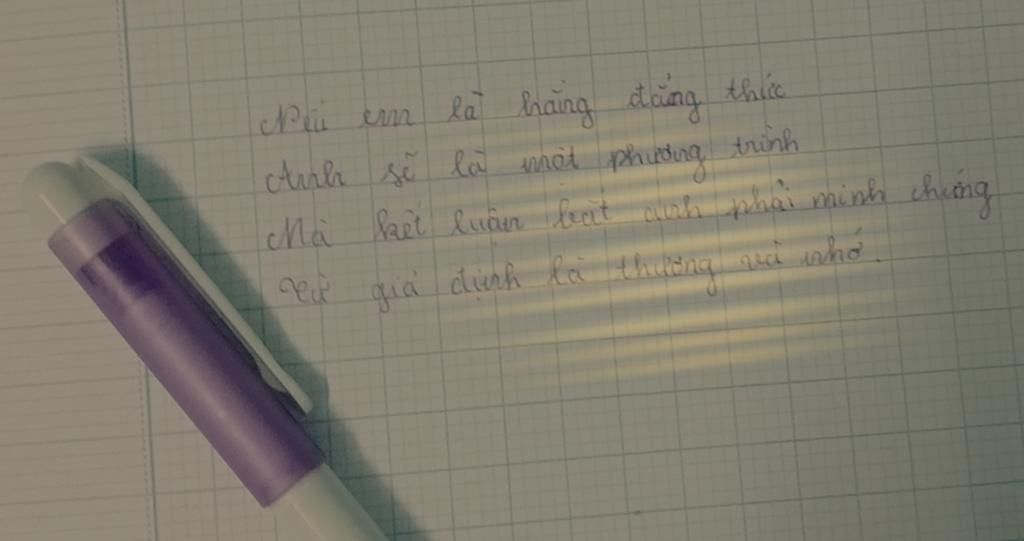 Nếu em là hằng đẳng thức
Anh sẽ là một phương trình
Mà kết luận anh phải minh chứng
Từ giả định là thương và nhớ.